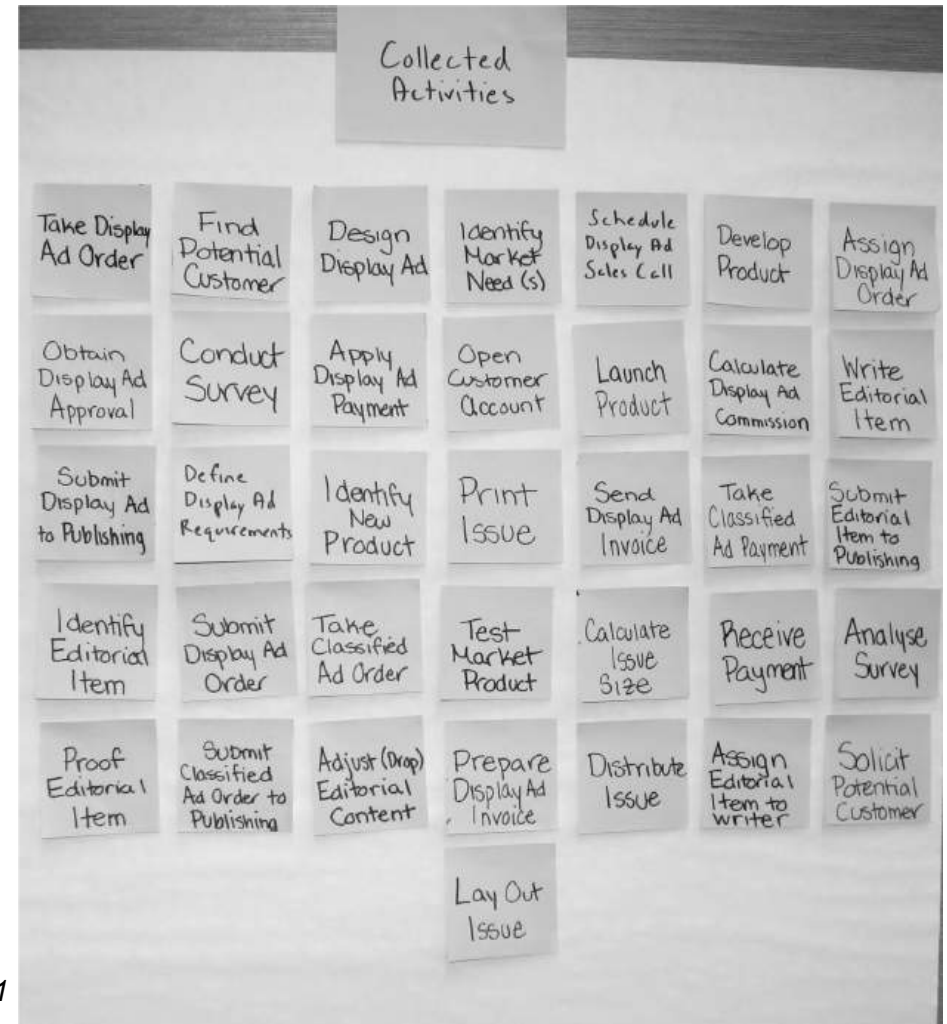 Collected
Activities
Take Display
Ad Order
Find
Potential
Customer
Design
Display Ad
Identify
Market
Need (s)
Schedule
Display Ad
Sales Call
Develop
Product
Assign
Display Ad
Order
Obtain
Display Ad
Approval
Conduct
Survey
Apply
Display Ad
Payment
Open
Customer
Account
Launch
Product
Calculate
Display Ad
Commission
Write
Editorial
Item
Submit
Display Ad
to Publishing
Define
Display Ad
Requirements
Identify
New
Product
Print
Issue
Send
Display Ad
Invoice
Take
Classified
Ad Payment
Submit
Editorial
Item to
Publishing
Identify
Editorial
Item
Submit
Display Ad
Order
Take
Classified
Ad Order
Test
Market
Product
Calculate
Issue
Size
Receive
Payment
Analyse
Survey
Proof
Editorial
Item
Submit
Classified
Ad Order to
Publishing
Adjust (Drop)
Editorial
Content
Prepare
Display Ad
Invoice
Distribute
Issue
Assign
Editorial
Item to
writer
Solicit
Potential
Customer
Lay Out
Issue
1